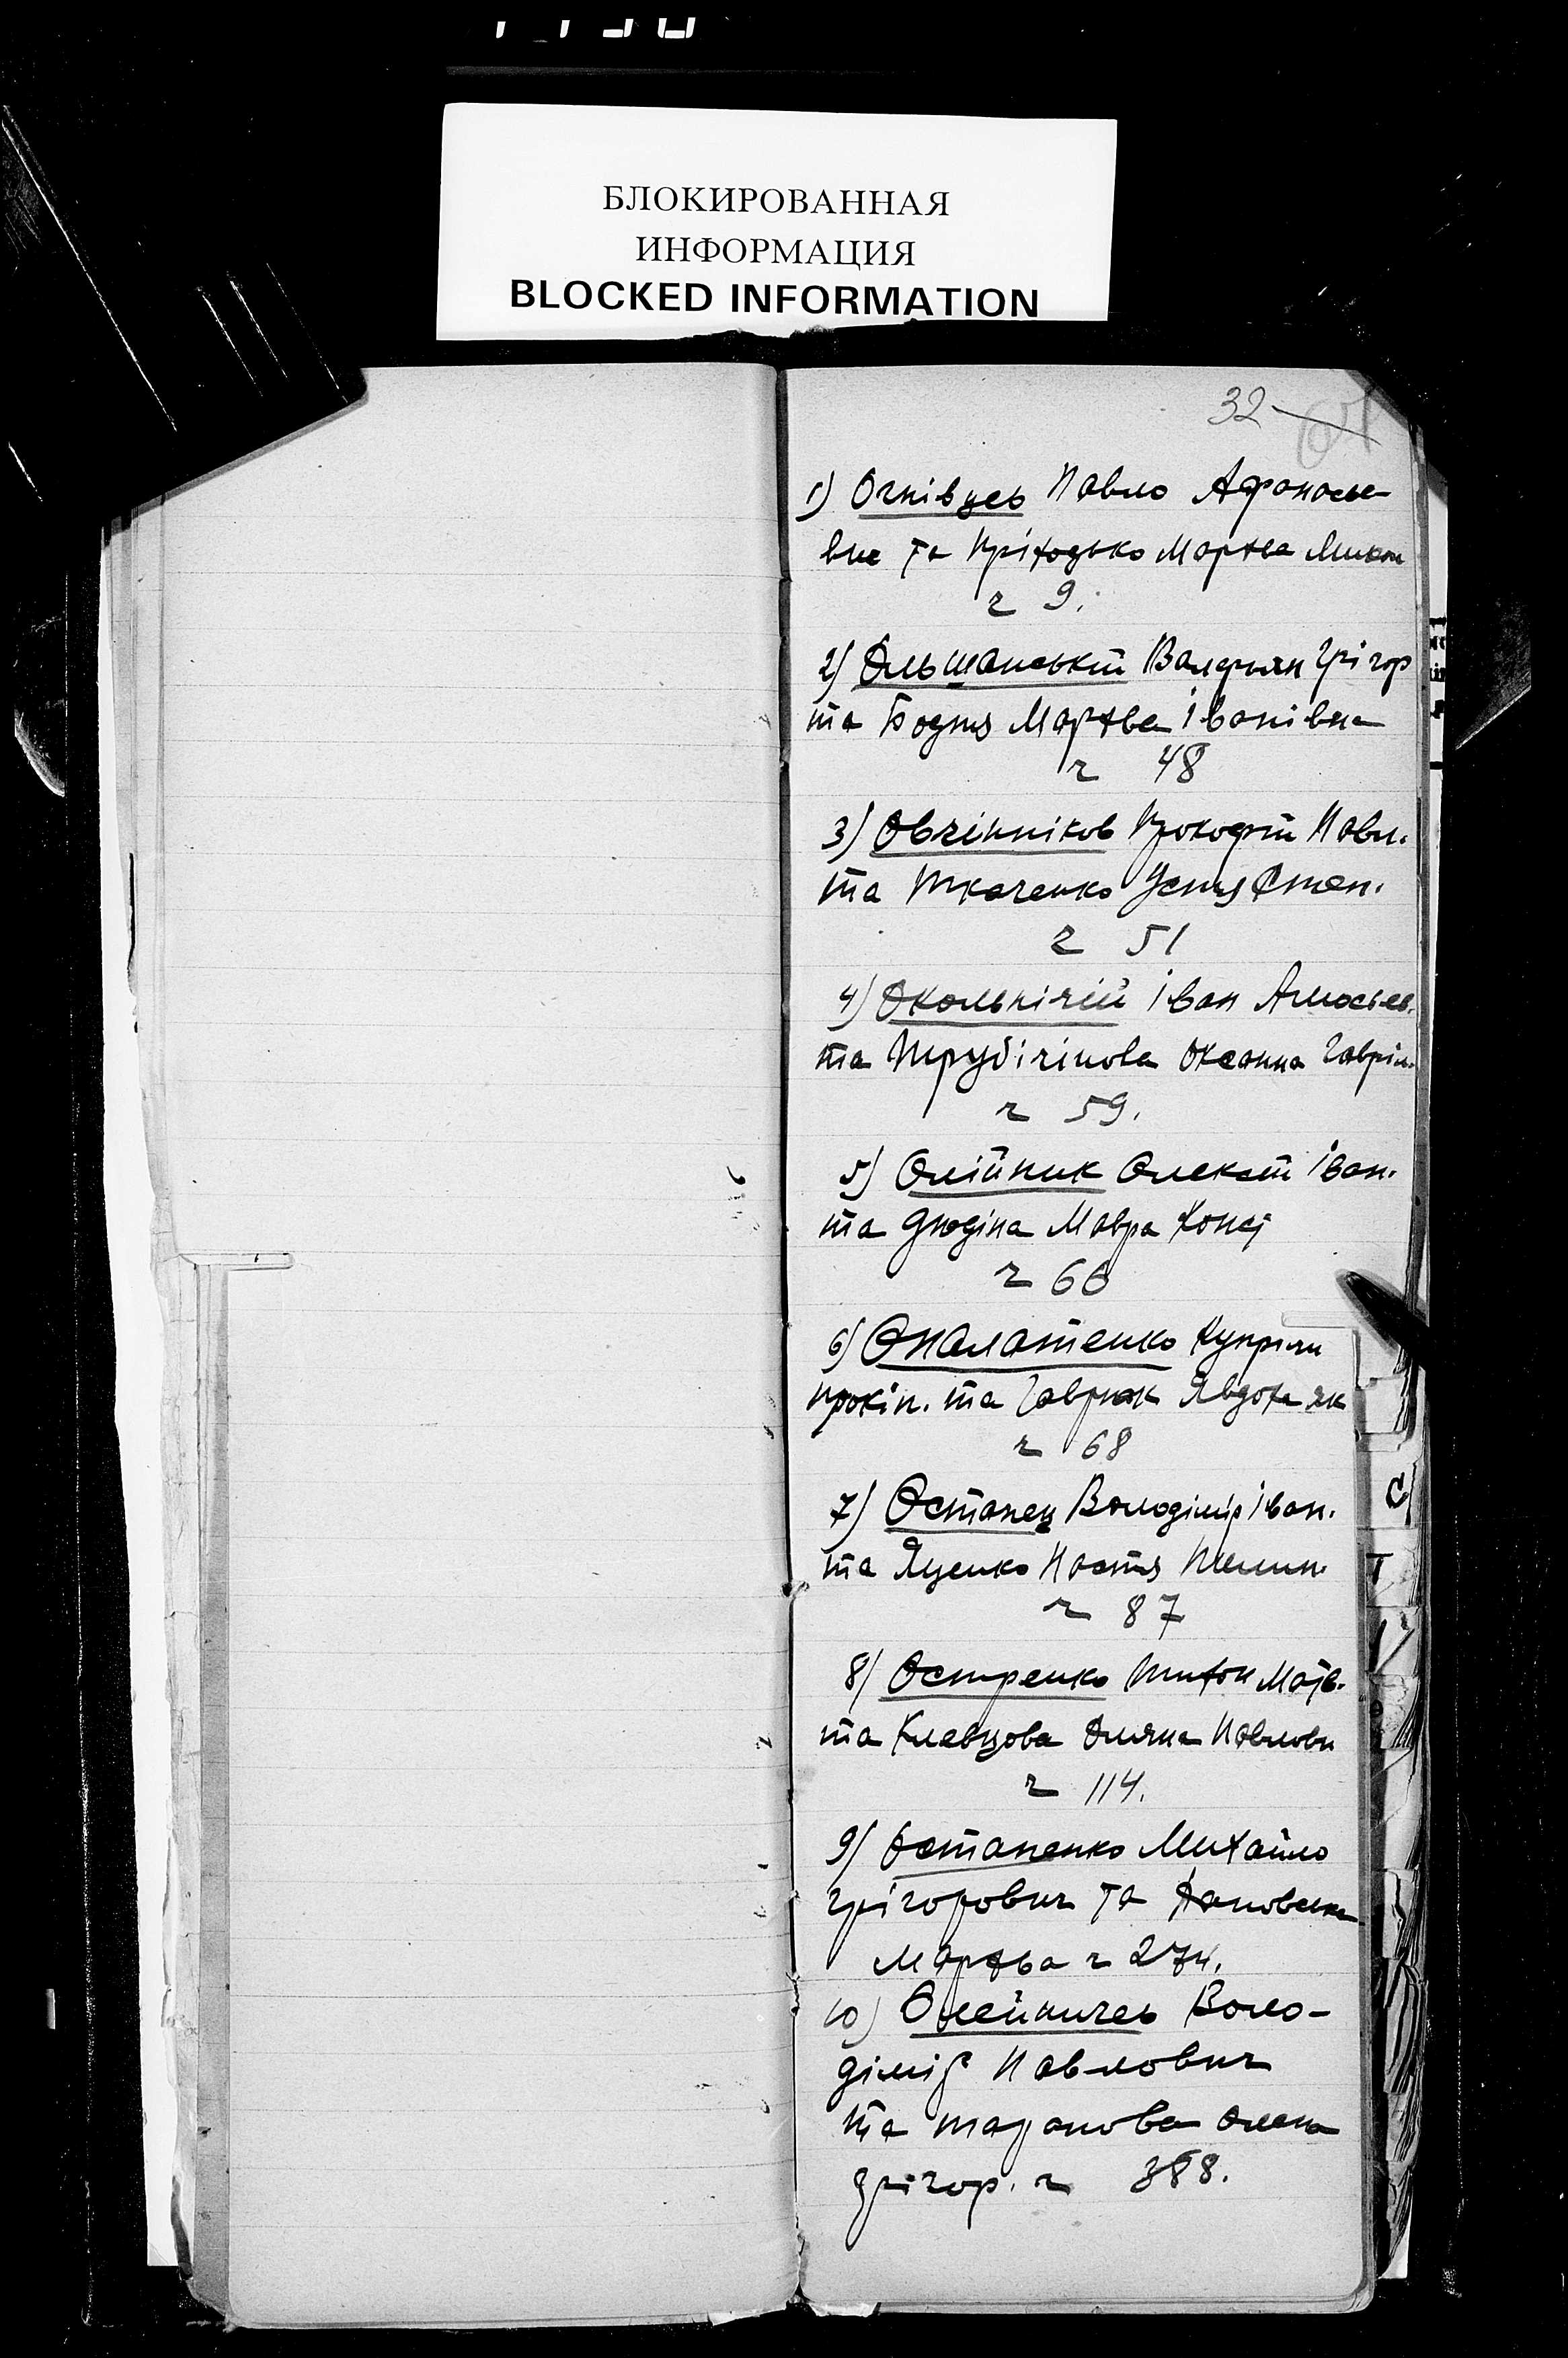 БЛОКИРОВАННАЯ
ИНФОРМАЦИЯ
BLOCKED INFORMATION
32
1) Огнівцев Павло Афанасье-
вич та Пріходько Марфа Микол
ч 9.
2) Ольшанський Валерьян Грігор
та Бодня Марфва Іванівна
ч 48
3) Овчінніков Прокофій Павл.
та Ткаченко Устя Степ.
ч 51
4) Окольнічій Іван
та Трубічінова Оксанна Гавріл.
ч 59.
5) Олійник Олексій Іван.
та Дюдіна Мавра
ч 66
6) Опалатенко Купріян
Прокіп. та Явдоха Як
ч 68
7) Останец Володімір Іван.
та Яценко Настя
ч 87
8) Остренко Тихон Матв.
та Клевцова Павловн
ч 114.
9) Остапенко Михайло
Грігорович та
Марфва ч 274.
10) Олейничев Воло-
дімір Павлович
та Таранова Олена
Грігор. ч 388.
С
Т